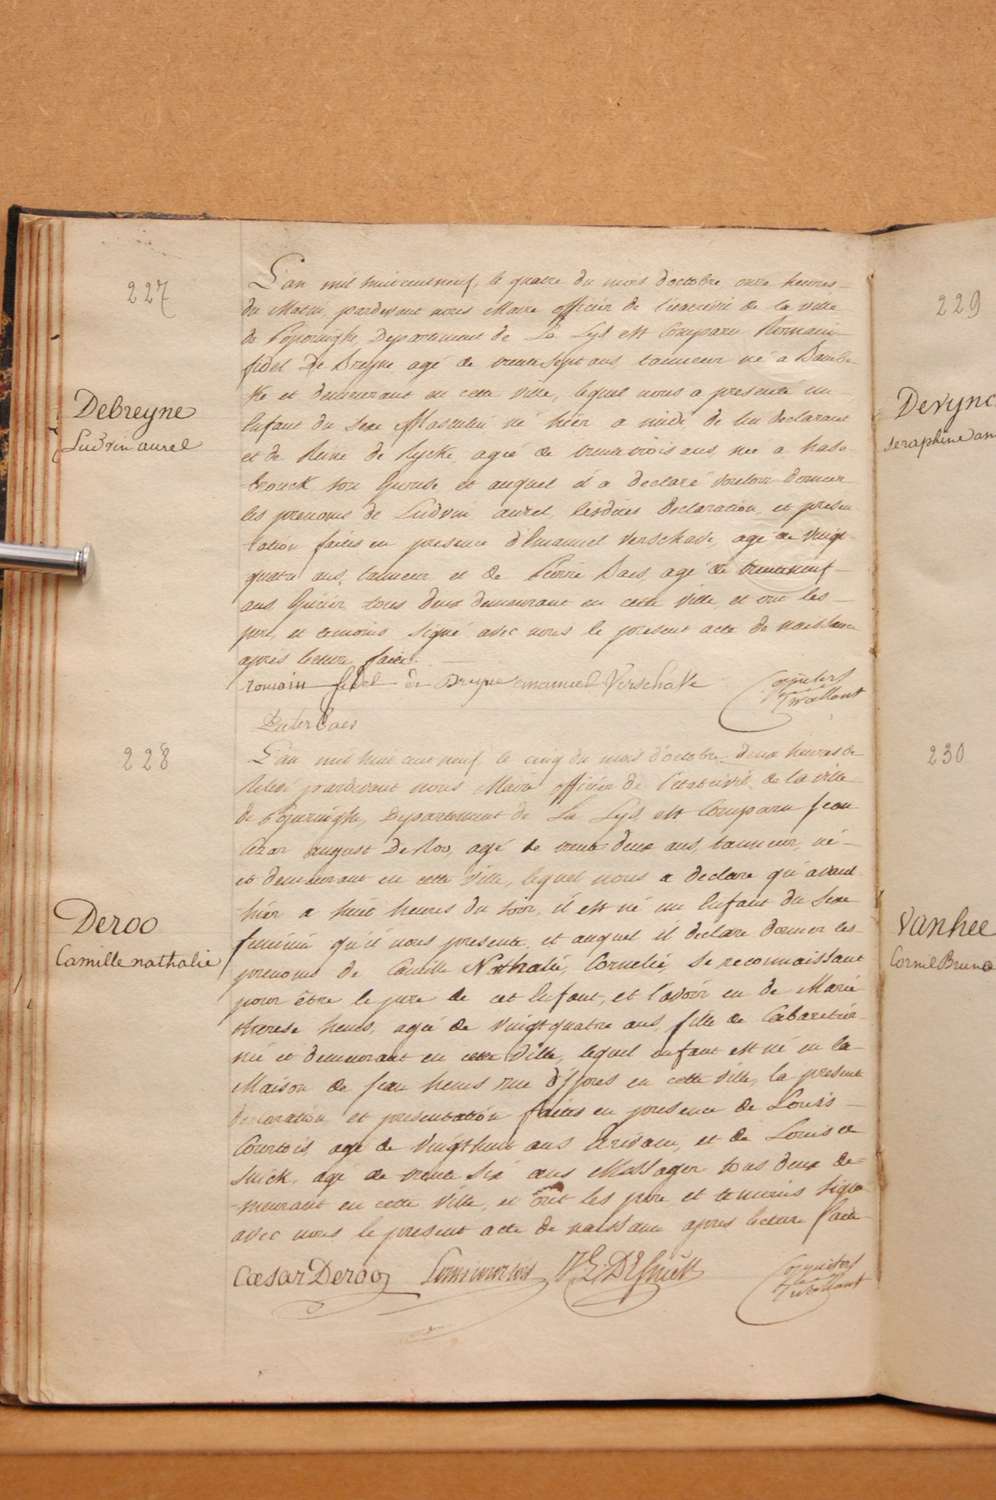 227
Debreyne
Ludvin aurel
L'an mil huit cent neuf, le quatre du mois d'octobre onze heures
du Matin, pardevant nous Maire officier de l'etat civil de la ville
de Poperinghe, Departement de La Lys est Comparu Romain
fidel De Breyne agé de trente sept ans tanneur né a
et demeurant en cette ville, lequel nous a presenté un
Enfant du Sexe Masculin né hier a midi de lui declarant
et de Reine de Rycke, agée de trente trois ans née a hase-
brouck, son Epouse et auquel il a declaré vouloir donner
les prenoms de Ludvin aurel, lesdites declaration et presen
tation faites en presence d'Emanuel Verschave, agé de vingt
quatre ans, tanneur, et de Pierre Daes, agé de trente neuf
ans, tous deux demeurant en cette ville, et ont les
pere et temoins signé avec nous le present acte de naissance
apres lecture faite.
romain fidel de Breyne emanuel Verschave
Pieter Daes
228
Deroo
Camille nathalie
L'an mil huit cent neuf le cinq du mois d'octobre deux heures de
Relevé pardevant nous Maire officier de l'etat civil de la ville
de Poperinghe, Departement de La Lys, est Comparu Jean
Cézar august De Roo, agé de trente deux ans, tanneur, né
et demeurant en cette ville, lequel nous a declaré qu'avant
hier a huit heures du soir, il est né un Enfant du Sexe
feminin qu'il nous presente, et auquel il declare donner les
prenoms de Camille Nathalie, Cornelie, se reconnaissant
pour être le pere de cet Enfant, et l'avoir eu de Marie
therese heus, agée de vingt quatre ans, fille de Cabaretier
née et demeurant en cette Ville, lequel enfant est né en la
Maison de Jean heus rue d'Ypres en cette ville, la presente
declaration et presentation faites en presence de Louis
Courtois, agé de vingt huit ans Ecrivain, et de Louis de
Snick, agé de trente six ans Messager tous deux de-
meurant en cette ville, et ont les pere et temoins signé
avec nous le present acte de naissance apres lecture faite
Cæsar Deroo Louis courtois
229
Devync
seraphine an
230
Vanhee
Cornil Bruno